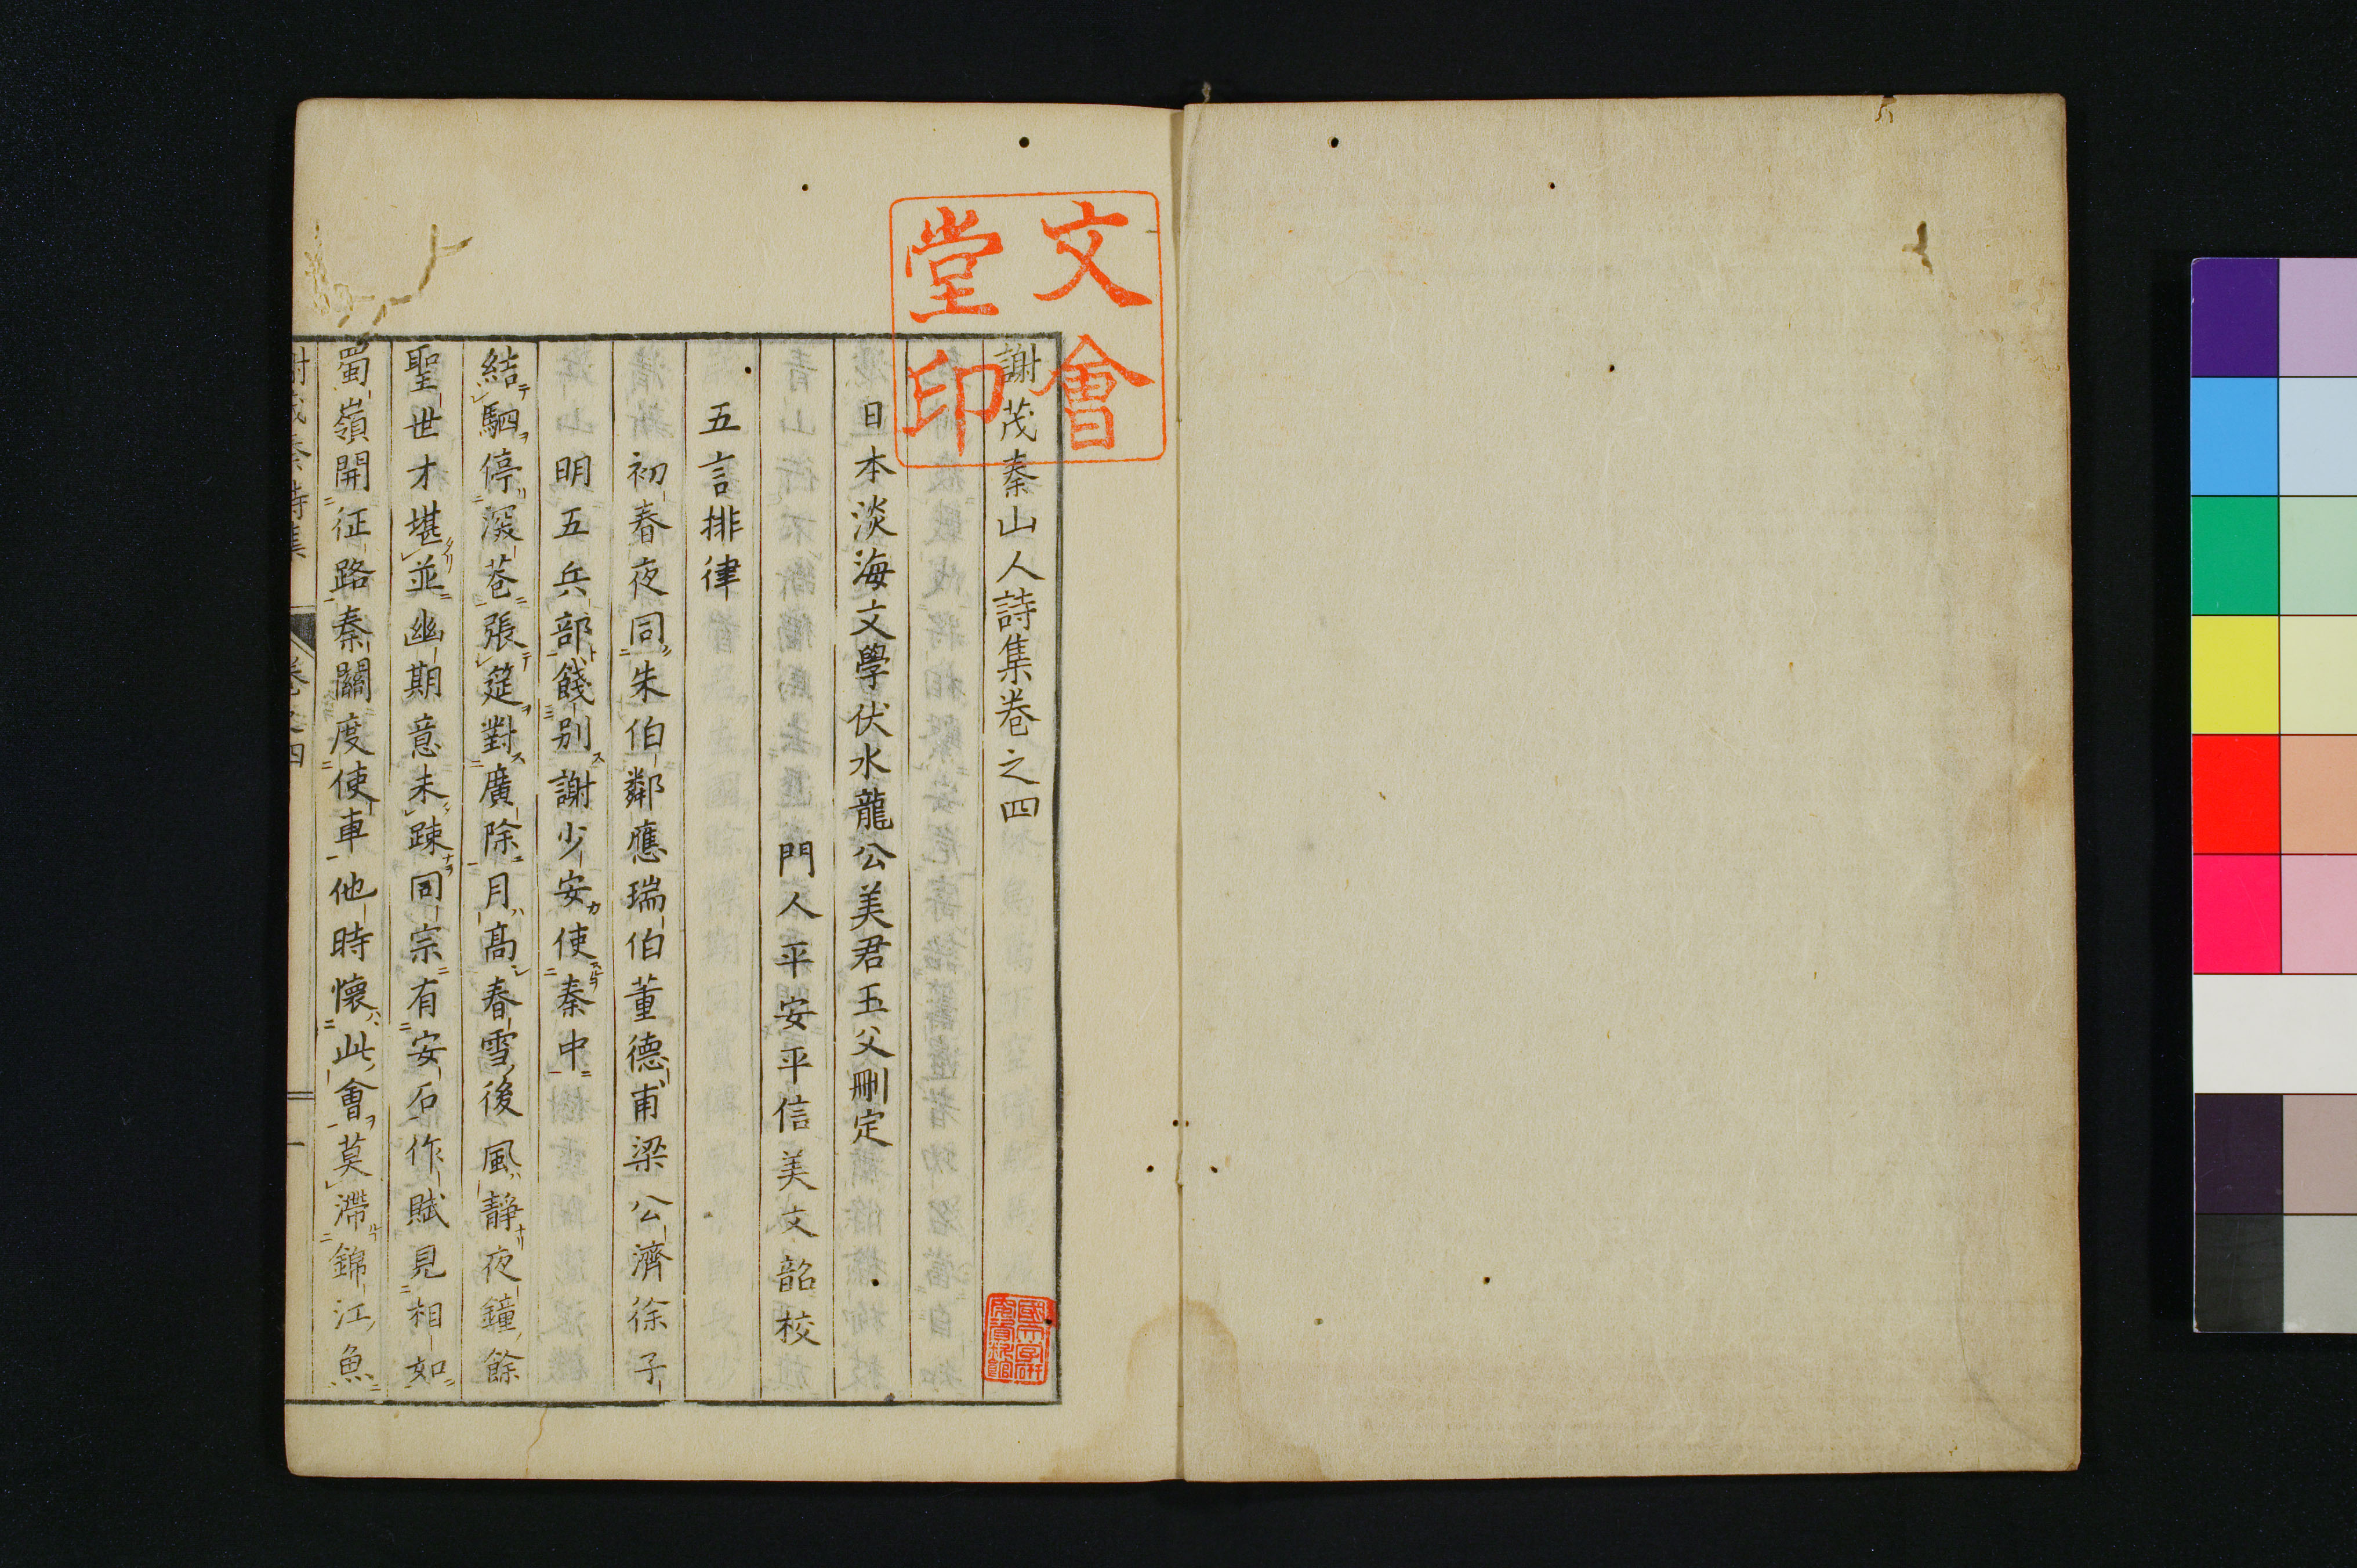 文會
堂印
謝茂秦山人詩集卷之四
日本淡海文學伏水龍公美君玉父刪定
門人平安平信美文韶校
五言排律
初春夜同朱伯鄰應瑞伯董德甫梁公濟徐子
明五兵部餞別謝少安使秦中
結駟停深巷張筵對廣除月高春雪後風靜夜鐘餘
聖世才堪並幽期意未疎同宗有安石作賦見相如
蜀嶺開征路秦關度使車他時懷此會莫滯錦江魚
謝茂秦詩集 卷之四 一